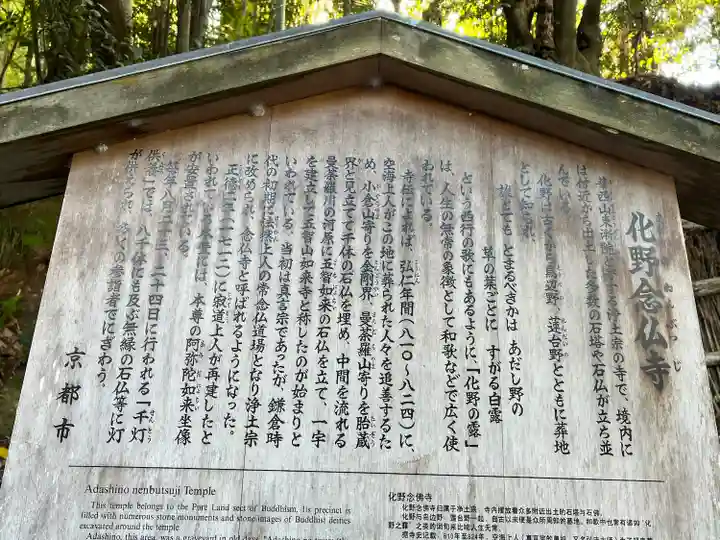 化野念仏寺
あだしのねんぶつじ
華西山東漸院と号する浄土宗の寺で、境内に
は付近から出土した多数の石塔や石仏が立ち並
んでいる。
化野は古くから鳥辺野、蓮台野とともに葬地
として知られ、
誰とても とまるべきかは あだし野の
草の葉ごとに すがる白露
という西行の歌にもあるように、「化野の露」
は、人生の無常の象徴として和歌などで広く使
われている。
寺伝によれば、弘仁年間(八一〇～八二四)に、
空海上人がこの地に葬られた人々を追善するた
め、小倉山寄りを金剛界、曼荼羅山寄りを胎蔵
界と見立てて千体の石仏を埋め、中間を流れる
曼荼羅川の河原に五智如来の石仏を立て、一宇
を建立して五智山如来寺と称したのが始まりと
いわれている。当初は真言宗であったが、鎌倉時
代の初期に法然上人の常念仏道場となり浄土宗
に改められ、念仏寺と呼ばれるようになった。
正徳二年(一七一二)に寂道上人が再建したと
いわれている本堂には、本尊の阿弥陀如来坐像
が安置されている。
毎年八月二十三、二十四日に行われる「千灯
供養」では、八千体にも及ぶ無縁の石仏等に灯
が供えられ、多くの参詣者でにぎわう。
京都市
Adashino nenbutsuji Temple
This temple belongs to the Pure Land sect of Buddhism. Its precinct is
filled with numerous stone monuments and stone images of Buddhist deities
excavated around the temple.
Adashino, this area, was a graveyard in old days.
化野念佛寺
化野念佛寺归属于净土宗。寺内摆放着众多附近出土的石塔与石佛。